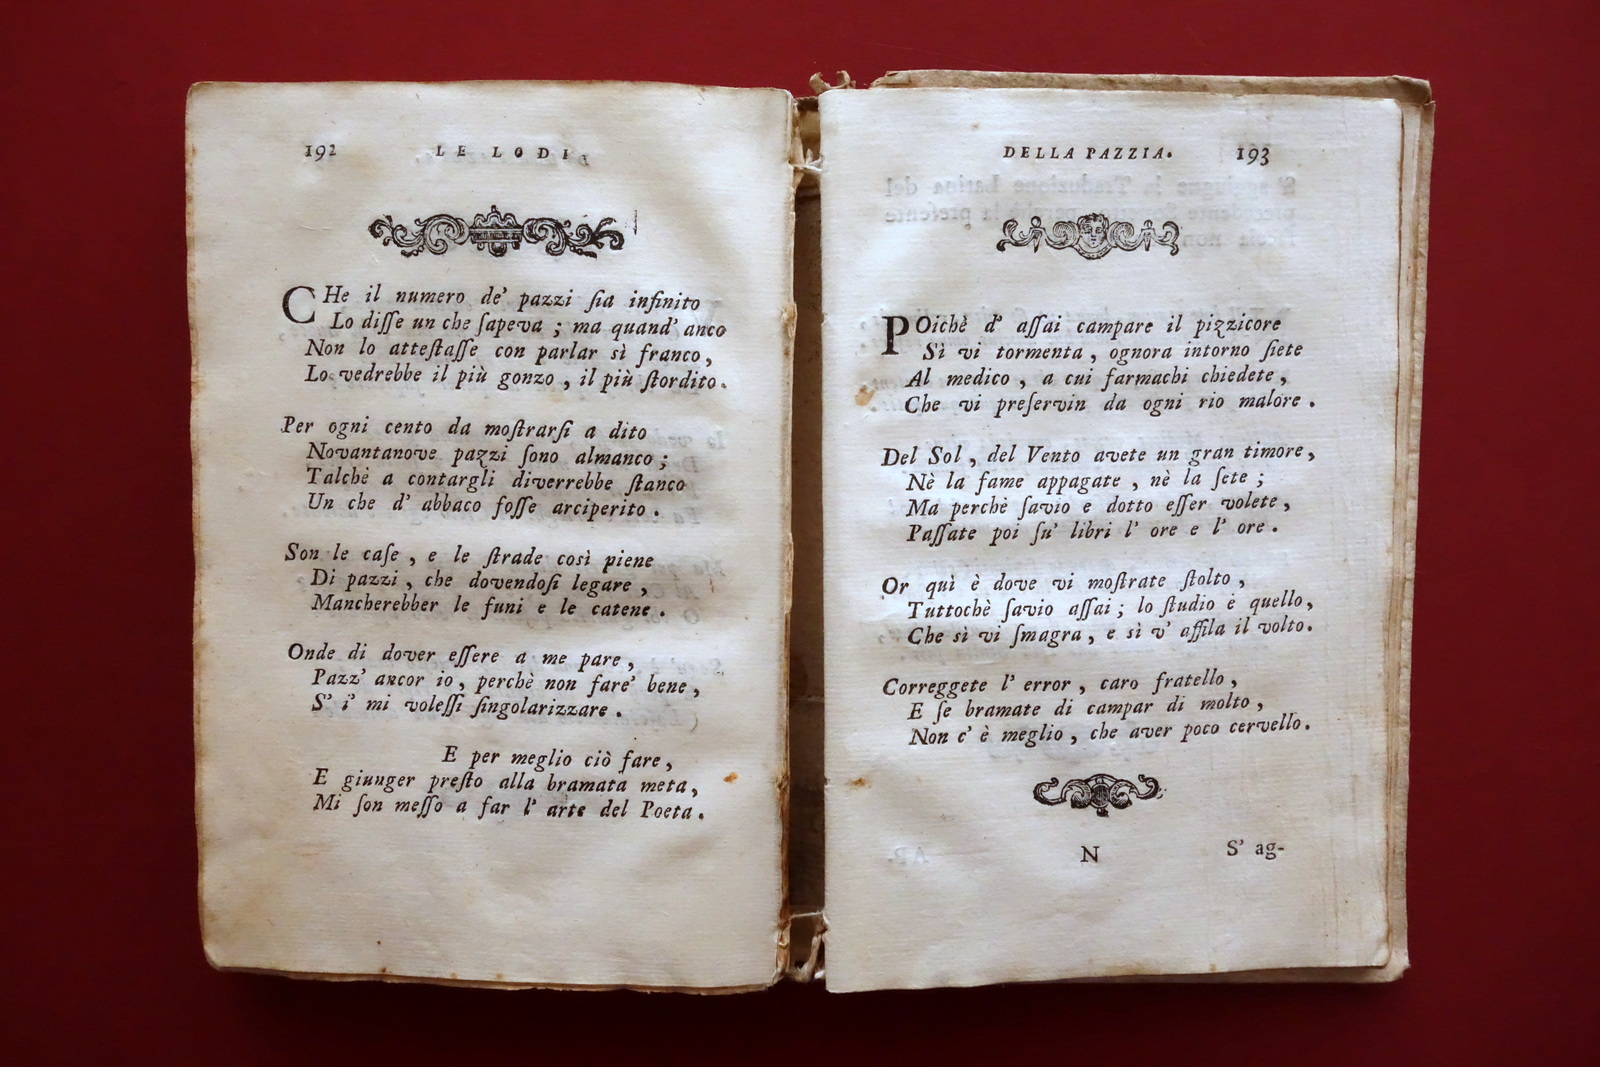 192 LE LODI
CHe il numero de' pazzi ſia infinito
Lo diſſe un che ſapeva ; ma quand' anco
Non lo atteſtaſſe con parlar sì franco,
Lo vedrebbe il più gonzo , il più ſtordito.
Per ogni cento da moſtrarſi a dito
Novantanove pazzi ſono almanco ;
Talchè a contargli diverrebbe ſtanco
Un che d' abbaco foſſe arciperito .
Son le caſe , e le ſtrade così piene
Di pazzi , che dovendoſi legare ,
Mancherebber le funi e le catene .
Onde di dover eſſere a me pare ,
Pazz' ancor io, perchè non fare' bene ,
S' i' mi voleſſi ſingolarizzare .
E per meglio ciò fare,
E giunger preſto alla bramata meta,
Mi ſon meſſo a far l' arte del Poeta.
DELLA PAZZIA. 193
POichè d' aſſai campare il pizzicore
Sì vi tormenta , ognora intorno ſiete
Al medico , a cui farmachi chiedete ,
Che vi preſervin da ogni rio malore .
Del Sol , del Vento avete un gran timore,
Nè la fame appagate , nè la ſete ;
Ma perchè ſavio e dotto eſſer volete ,
Paſſate poi ſu' libri l' ore e l' ore .
Or quì è dove vi moſtrate ſtolto ,
Tuttochè ſavio aſſai ; lo ſtudio è quello,
Che sì vi ſmagra , e sì v' affila il volto.
Correggete l' error , caro fratello ,
E ſe bramate di campar di molto ,
Non c' è meglio , che aver poco cervello.
N S' ag-